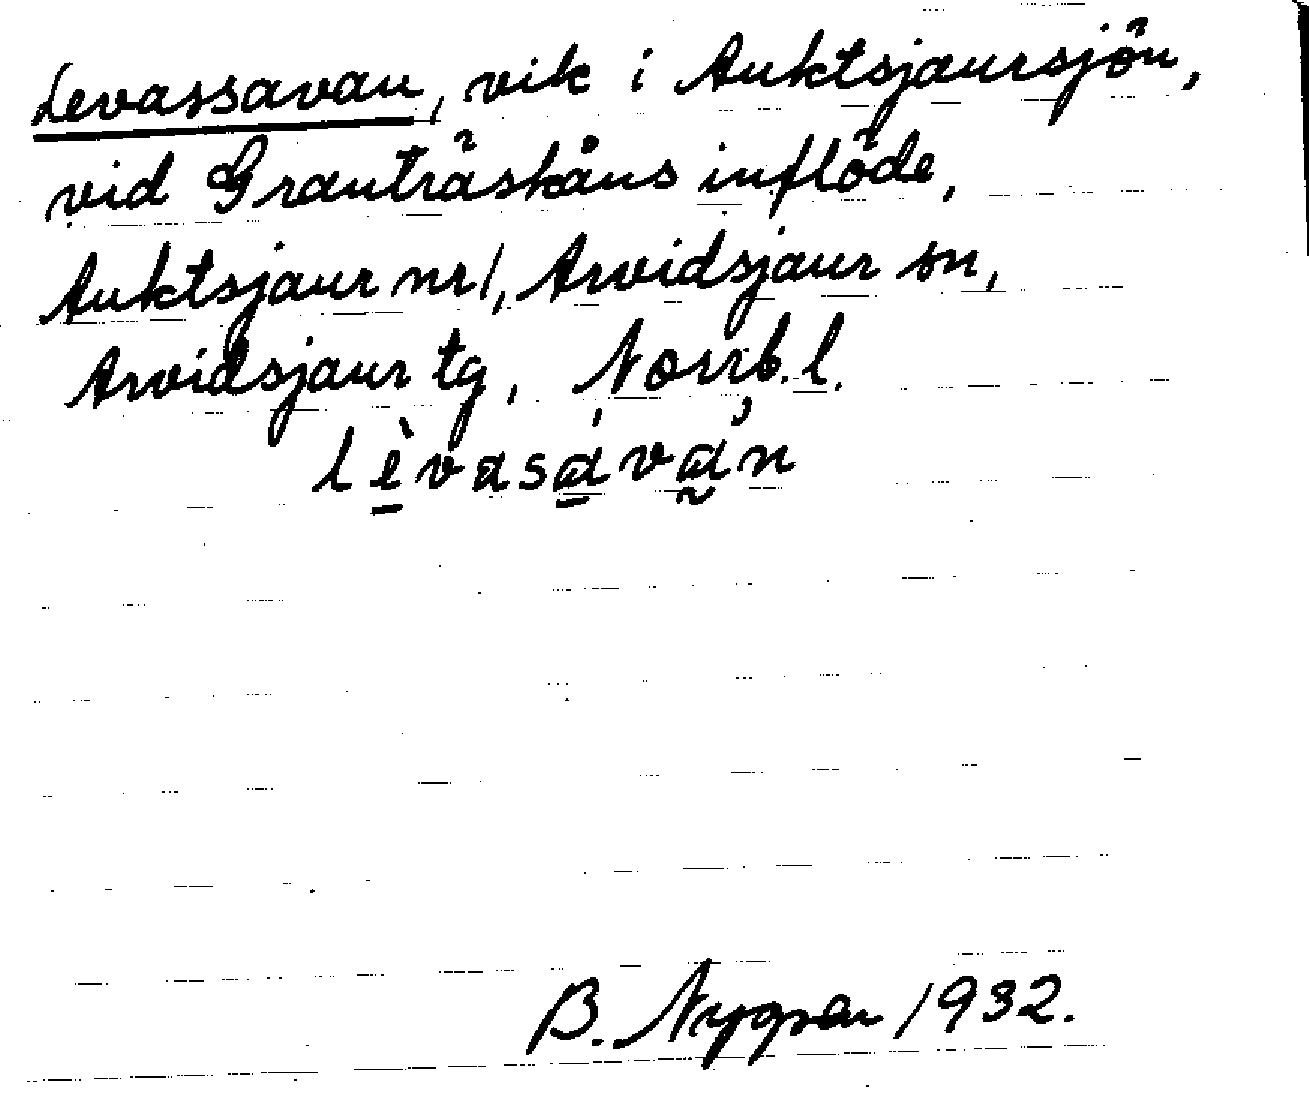 Levassavan, vik i Auktsjaursjön,
vid Granträskåns inflöde,
Auktsjaur nr 1, Arvidsjaur sn,
Arvidsjaur tg, Norrb. l.
lèvasáván
B. Nygren 1932.